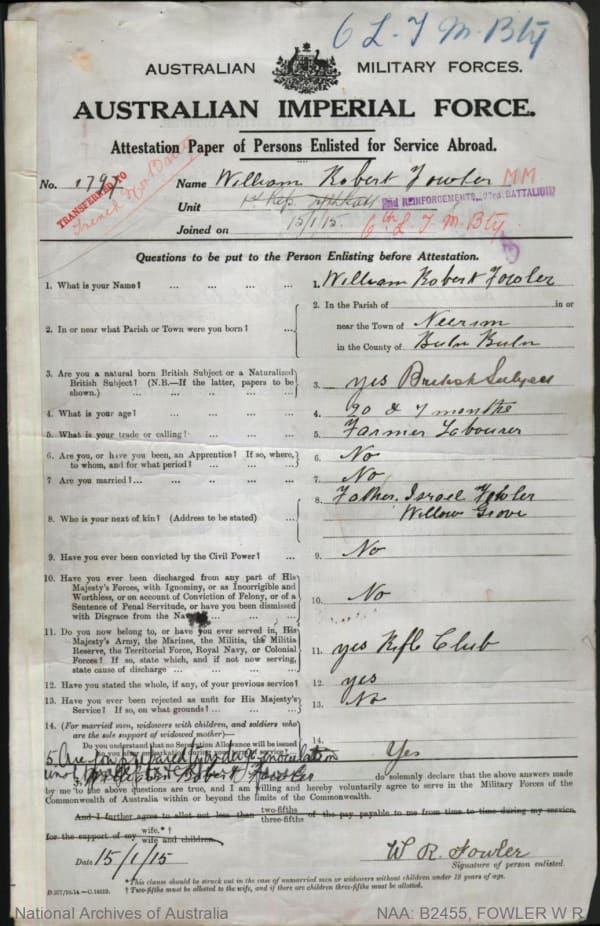 6 L. T M. Bty
AUSTRALIAN MILITARY FORCES.
AUSTRALIAN IMPERIAL FORCE.
Attestation Paper of Persons Enlisted for Service Abroad.
TRANSFERRED TO
French
No. 1797 Name William Robert Fowler MM
Unit 2nd REINFORCEMENTS, 23rd BATTALION
Joined on 15/1/15. 6th L T M. Bty
Questions to be put to the Person Enlisting before Attestation.
1. What is your Name? ... ... ... 1. William Robert Fowler
2. In or near what Parish or Town were you born? ... 2. In the Parish of in or
near the Town of Neerim
in the County of Buln Buln
3. Are you a natural born British Subject or a Naturalized
British Subject? (N.B.—If the latter, papers to be
shown.) ... ... ... ... 3. yes British Subject
4. What is your age? ... ... ... 4. 20 & 7 months
5. What is your trade or calling? ... ... ... 5. Farmer Labourer
6. Are you, or have you been, an Apprentice? If so, where,
to whom, and for what period? ... ... ... 6. No
7. Are you married? ... ... ... ... 7. No
8. Who is your next of kin? (Address to be stated) ... 8. Father, Israel Fowler
Willow Grove
9. Have you ever been convicted by the Civil Power? ... 9. No
10. Have you ever been discharged from any part of His
Majesty's Forces, with Ignominy, or as Incorrigible and
Worthless, or on account of Conviction of Felony, or of a
Sentence of Penal Servitude, or have you been dismissed
with Disgrace from the Navy? ... 10. No
11. Do you now belong to, or have you ever served in, His
Majesty's Army, the Marines, the Militia, the Militia
Reserve, the Territorial Force, Royal Navy, or Colonial
Forces? If so, state which, and if not now serving,
state cause of discharge ... ... ... 11. yes Rifle Club
12. Have you stated the whole, if any, of your previous service? 12. yes
13. Have you ever been rejected as unfit for His Majesty's
Service? If so, on what grounds? ... ... 13. No
14. (For married men, widowers with children, and soldiers who
are the sole support of widowed mother)—
Do you understand that no Separation Allowance will be issued
14.
15. Are you prepared to undergo inoculation Yes
William Robert Fowler do solemnly declare that the above answers made
by me to the above questions are true, and I am willing and hereby voluntarily agree to serve in the Military Forces of the
Commonwealth of Australia within or beyond the limits of the Commonwealth.
And I further agree to allot not less than two-fifths three-fifths of the pay payable to me from time to time during my service
for the support of my wife.*† wife and children.
Date 15/1/15 W R. Fowler
Signature of person enlisted.
*This clause should be struck out in the case of unmarried men or widowers without children under 18 years of age.
† Two-fifths must be allotted to the wife, and if there are children three-fifths must be allotted.
National Archives of Australia NAA: B2455, FOWLER W R